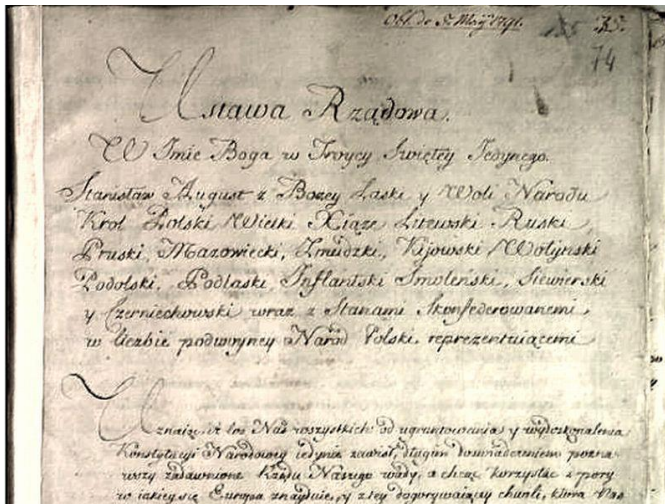 Obl. de 5. Maÿ 1791.
35.
74
Ustawa Rządowa.
W Imie Boga w Troycy Swiętey Jedynego.
Stanisław August z Bozey Łaski y Woli Narodu
Krol Polski, Wielki Xiąze Litewski, Ruski,
Pruski, Mazowiecki, Zmudzki, Kijowski, Wołynski
Podolski, Podlaski, Inflantski, Smoleński, Siewierski
y Czerniechowski wraz z Stanami Skonfederowanemi
w liczbie podwoyney Naród Polski reprezentuiącemi
Uznaiąc, iż los Nas wszystkich od ugruntowania y wydoskonalenia
Konstytucyi Narodowey iedynie zawisł, długim doswiadczeniem pozna-
wszy zadawnione Rządu Naszego wady, a chcąc korzystać z pory
w iakiey się Europa znayduie, y z tey dogorywaiącey chwili, która Nas